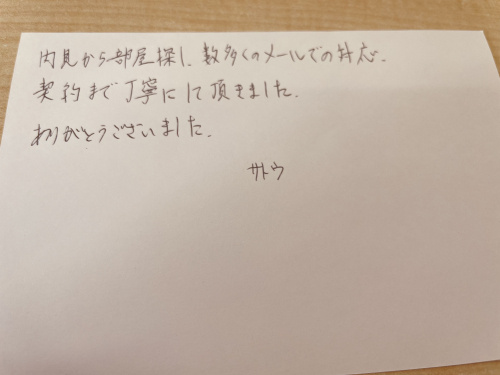 内見から部屋探し、数多くのメールでの対応、
契約まで丁寧にして頂きました。
ありがとうございました。
サトウ